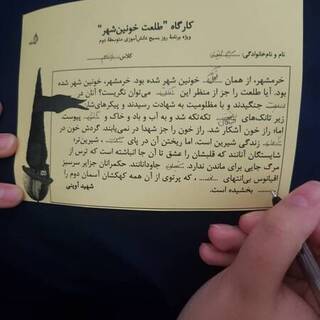 کارگاه "طلعت خونین‌شهر"
ویژه برنامهٔ روز بسیج دانش‌آموزی متوسطهٔ دوم
نام و نام‌خانوادگی: کلاس:
خرمشهر، از همان خونین شهر شده بود. خرمشهر، خونین شهر شده
بود. آیا طلعت را جز از منظر این می‌توان نگریست؟ آنان در
جنگیدند و با مظلومیت به شهادت رسیدند و پیکرهای‌شان
زیر تانک‌های تکه‌تکه شد و به آب و باد و خاک و پیوست.
اما؛ راز خون آشکار شد. راز خون را جز شهدا در نمی‌یابند. گردش خون در
زندگی شیرین است. اما ریختن آن در پای شیرین‌تر؛
شایستگان آنانند که قلبشان را عشق تا آن جا انباشته است که ترس از
مرگ جایی برای ماندن ندارد. جاودانانند. حکمرانان جزایر سرسبز
اقیانوس بی‌انتهای ، که پرتوی از آن همه کهکشان آسمان دوم را
بخشیده است. شهید آوینی